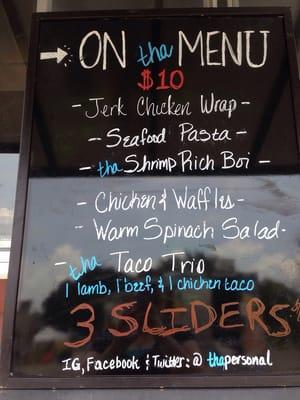 → ON tha MENU
$10
- Jerk Chicken Wrap -
- Seafood Pasta -
- tha Shrimp Rich Boi -
- Chicken & Waffles -
- Warm Spinach Salad -
- tha Taco Trio
1 lamb, 1 beef, & 1 chicken taco
3 SLIDERS
IG, Facebook & Twitter: @ thapersonal